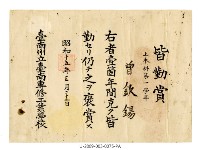 皆勤賞
土木科第一学年
曾欽錫
右者壹箇年間克ク皆
勤セリ仍テ之ヲ褒賞ス
昭和十五年三月二十日
臺南州立臺南專修工業學校